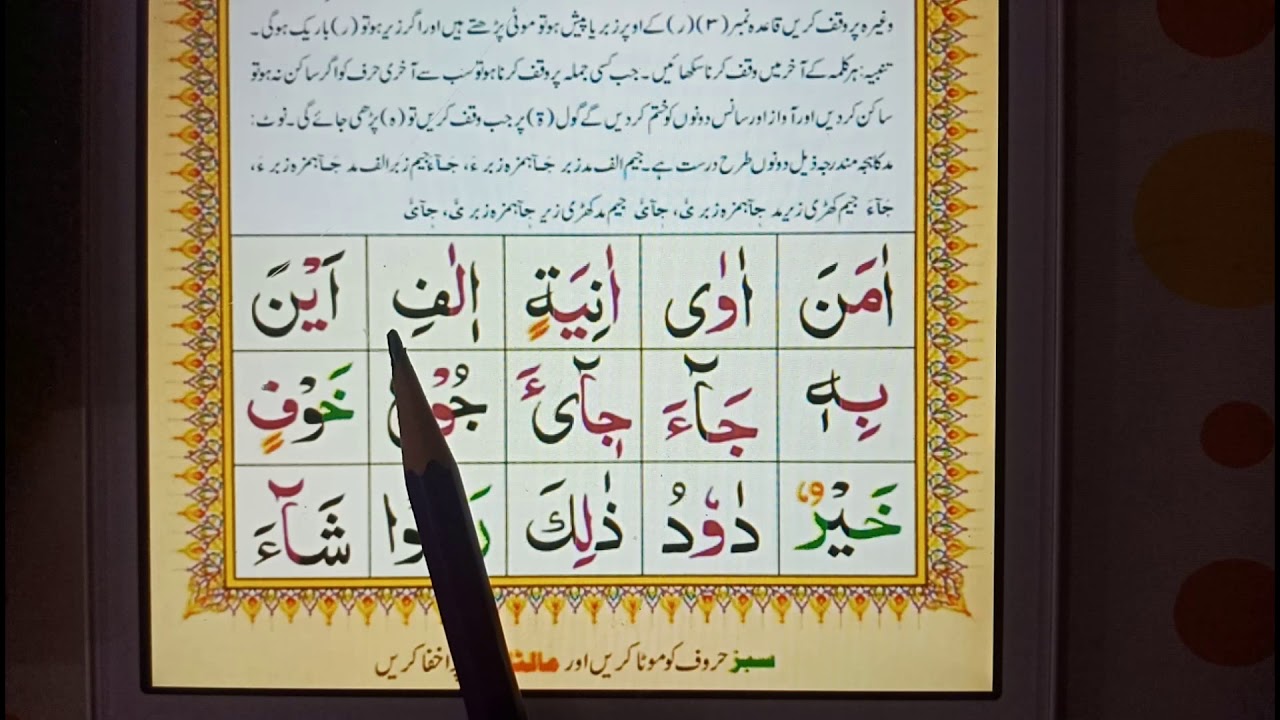 وغیرہ پر وقف کریں قاعدہ نمبر (۳) (ر) کے اوپر زبر یا پیش ہو تو موٹی پڑھتے ہیں اور اگر زیر ہو تو (ر) باریک ہوگی۔
تنبیہ: ہر کلمہ کے آخر میں وقف کرنا سکھائیں۔ جب کسی جملہ پر وقف کرنا ہو تو سب سے آخری حرف کو اگر ساکن نہ ہو تو
ساکن کر دیں اور آواز اور سانس دونوں کو ختم کر دیں گے گول (ۃ) پر جب وقف کریں تو (ہ) پڑھی جائے گی۔ نوٹ:
مد کا ہجہ مندرجہ ذیل دونوں طرح درست ہے۔ جیم الف مد زبر جَآ ہمزہ زبر ءَ، جَآءَ جیم زبر الف مد جَآ ہمزہ زبر ءَ،
جَآءَ جیم کھڑی زیر مد جآ ہمزہ زبر یَٔ، جآیَٔ جیم مد کھڑی زیر جآ ہمزہ زبر یَٔ، جآیَٔ
اٰمَنَ اٰوٰى اٰنِيَةٍ اٖلٰفِ اَيْنَ
بِهٖ جَآءَ جِآىْءَ خَوْفٍ
خَيْرٌ دَاوٗدُ ذٰلِكَ شَآءَ
سبز حروف کو موٹا کریں اور اخفا کریں